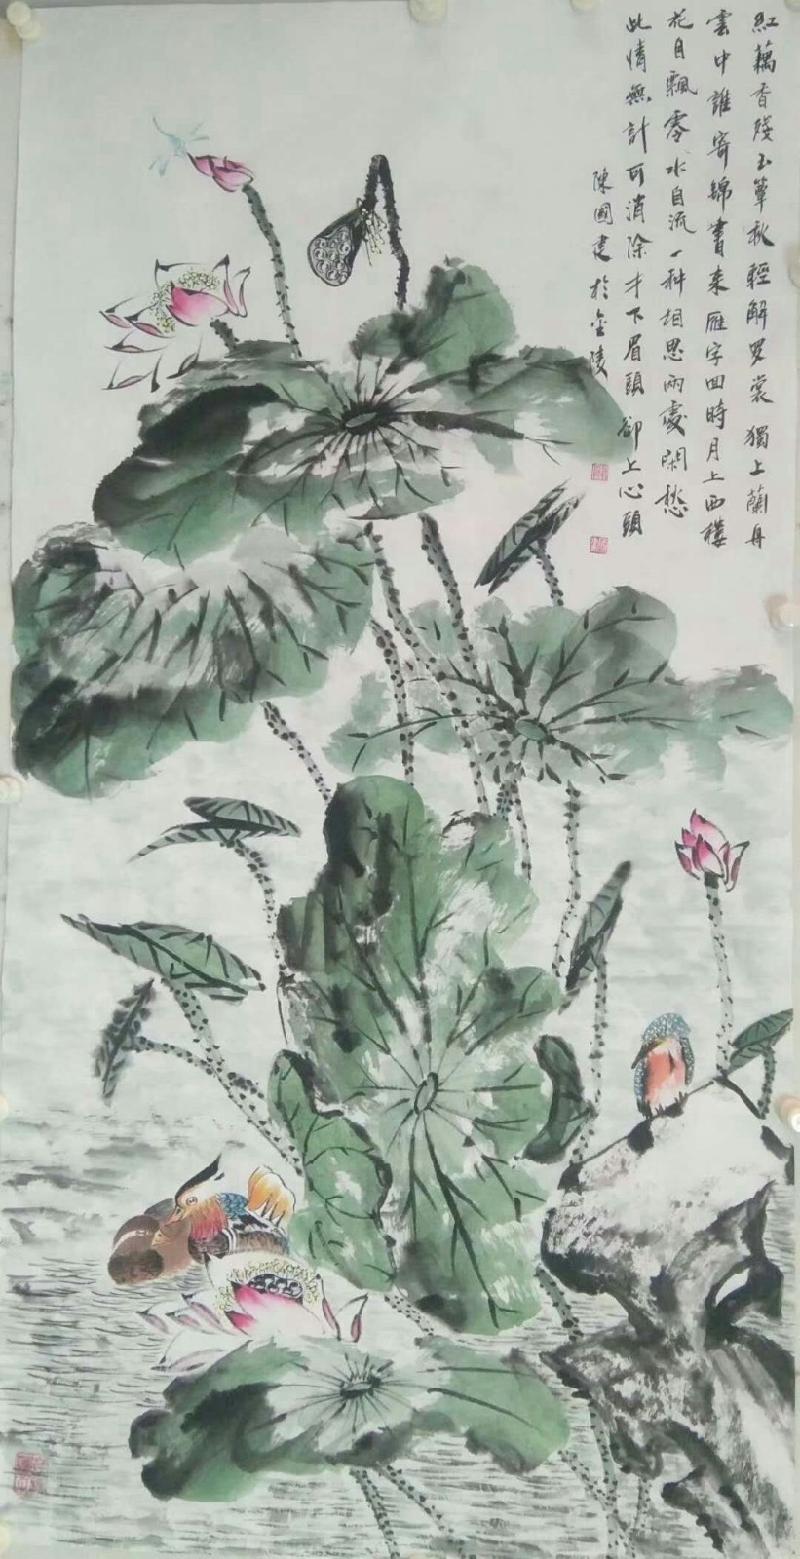 紅藕香殘玉簟秋輕解罗裳獨上蘭舟
雲中誰寄錦書来雁字回時月上西樓
花自飄零水自流一种相思兩處閑愁
此情無計可消除才下眉頭卻上心頭
陳國建於金陵